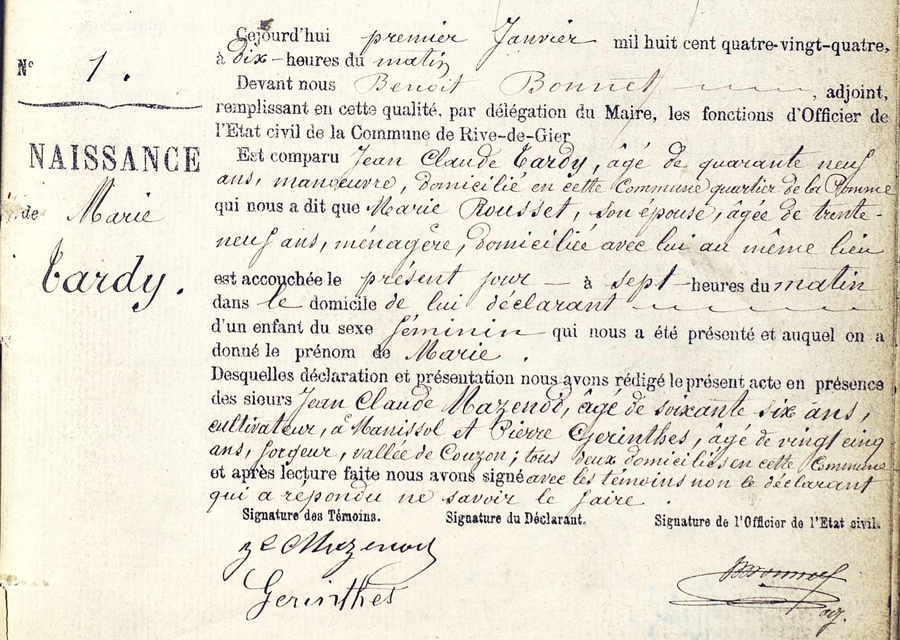 Nº 1.
NAISSANCE
de Marie
Tardy.
Cejourd'hui premier Janvier mil huit cent quatre-vingt-quatre,
à Dix-heures du matin
Devant nous Benoit Bonnet, adjoint,
remplissant en cette qualité, par délégation du Maire, les fonctions d'Officier de
l'Etat civil de la Commune de Rive-de-Gier
Est comparu Jean Claude Tardy, âgé de quarante neuf
ans, manœuvre, domicilié en cette Commune quartier de la Pomme
qui nous a dit que Marie Rousset, son épouse, âgée de trente-
neuf ans, ménagère, domiciliée avec lui au même lieu
est accouchée le présent jour — à sept-heures du matin
dans le domicile de lui déclarant
d'un enfant du sexe féminin qui nous a été présenté et auquel on a
donné le prénom de Marie.
Desquelles déclaration et présentation nous avons rédigé le présent acte en présence
des sieurs Jean Claude Mazenod, âgé de soixante six ans,
cultivateur, à Manissol et Pierre Gerinthes, âgé de vingt cinq
ans, forgeur, vallée de Couzon; tous deux domiciliés en cette Commune
et après lecture faite nous avons signé avec les témoins non le déclarant
qui a répondu ne savoir le faire.
Signature des Témoins. Signature du Déclarant. Signature de l'Officier de l'Etat civil.
Mazenod
Gerinthes
Bonnet
adj.